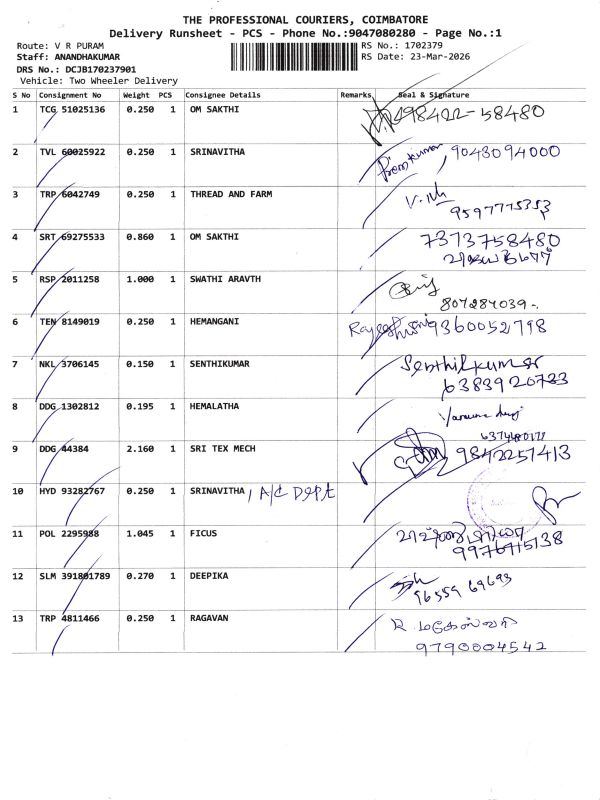 THE PROFESSIONAL COURIERS, COIMBATORE
Delivery Runsheet - PCS - Phone No.:9047080280 - Page No.:1
Route: V R PURAM RS No.: 1702379
Staff: ANANDHAKUMAR RS Date: 23-Mar-2026
DRS No.: DCJB170237901
Vehicle: Two Wheeler Delivery
S No Consignment No Weight PCS Consignee Details Remarks Seal & Signature
1 TCG 51025136 0.250 1 OM SAKTHI 98422-58480
2 TVL 60025922 0.250 1 SRINAVITHA Premkumar, 9043094000
3 TRP 6042749 0.250 1 THREAD AND FARM
4 SRT 69275533 0.860 1 OM SAKTHI 7373758480
5 RSP 2011258 1.000 1 SWATHI ARAVTH
6 TEN 8149019 0.250 1 HEMANGANI 9360052798
7 NKL 3706145 0.150 1 SENTHIKUMAR Senthilkumar
6383920733
8 DDG 1302812 0.195 1 HEMALATHA
9 DDG 44384 2.160 1 SRI TEX MECH 9842257413
10 HYD 93282767 0.250 1 SRINAVITHA, A/C Dept
11 POL 2295988 1.045 1 FICUS
12 SLM 391801789 0.270 1 DEEPIKA
96559 69693
13 TRP 4811466 0.250 1 RAGAVAN R மகேஸ்வரி
9790004542